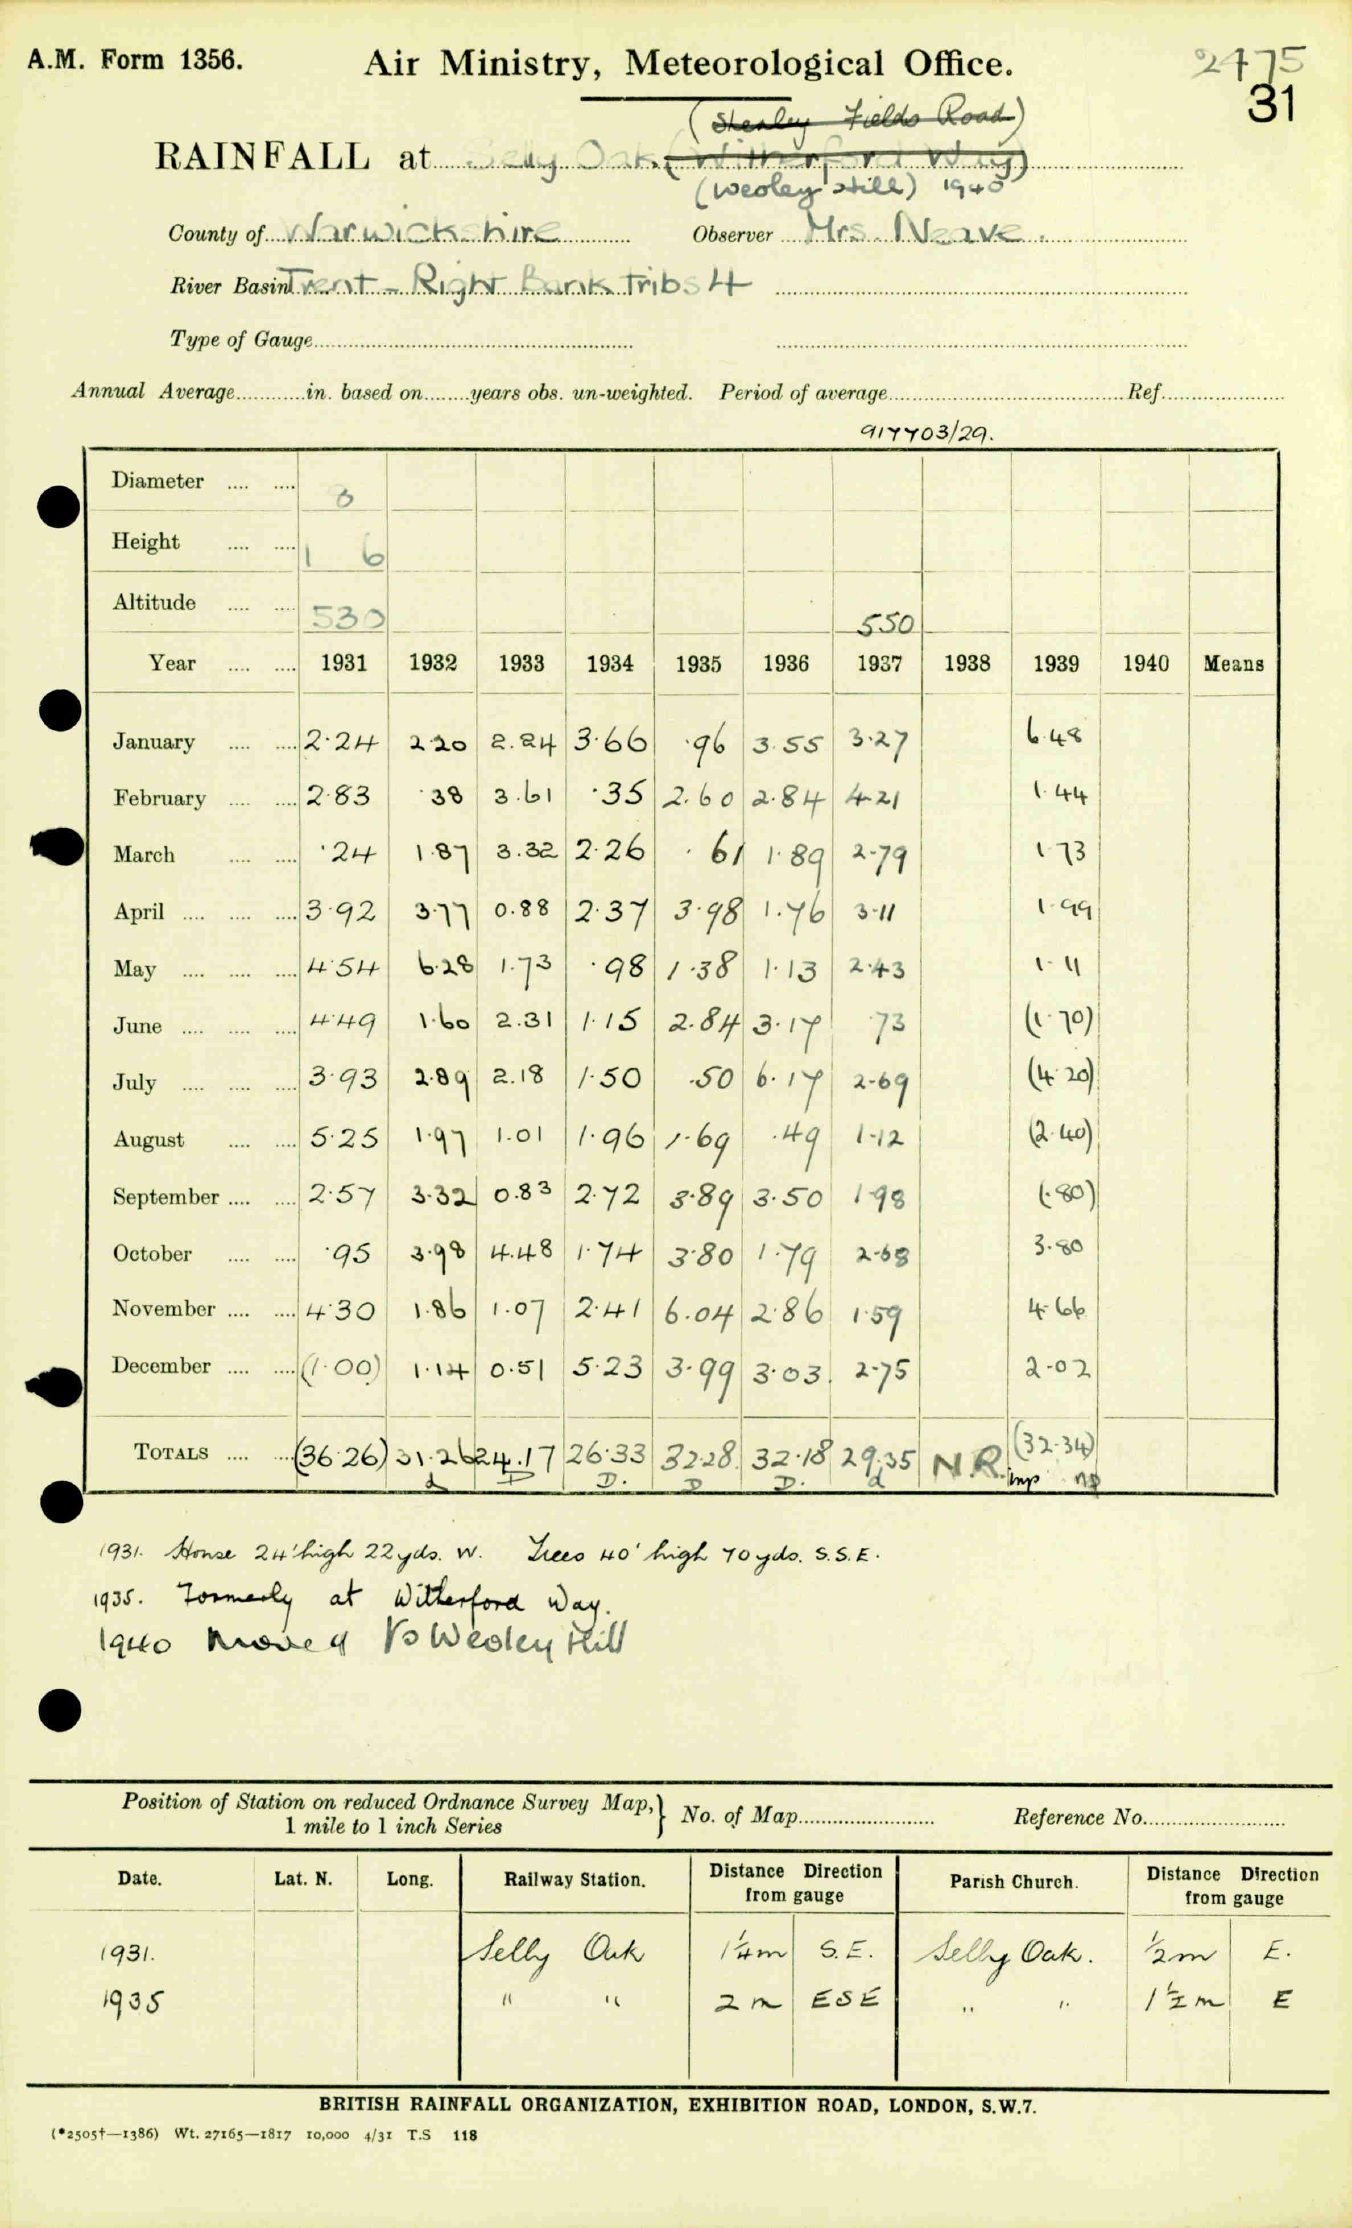 A.M. Form 1356.
Air Ministry, Meteorological Office.
2475
31
(Shenley Fields Road)
RAINFALL at Selly Oak (Witherford Way)
(Weoley Hill) 1940
County of Warwickshire Observer Mrs. Neave.
River Basin Trent - Right Bank Tribs 4
Type of Gauge
Annual Average in. based on years obs. un-weighted. Period of average Ref.
917703/29.
Diameter 8
Height 1 6
Altitude 530 550
Year 1931 1932 1933 1934 1935 1936 1937 1938 1939 1940 Means
January 2.24 2.20 2.24 3.66 .96 3.55 3.27 6.48
February 2.83 .38 3.61 .35 2.60 2.84 4.21 1.44
March .24 1.87 3.32 2.26 .61 1.89 2.79 1.73
April 3.92 3.77 0.88 2.37 3.98 1.76 3.11 1.99
May 4.54 6.28 1.73 .98 1.38 1.13 2.43 1.11
June 4.49 1.60 2.31 1.15 2.84 3.17 .73 (1.70)
July 3.93 2.89 2.18 1.50 .50 6.17 2.69 (4.20)
August 5.25 1.97 1.01 1.96 1.69 .49 1.12 (2.40)
September 2.57 3.32 0.83 2.72 3.89 3.50 1.98 (.80)
October .95 3.98 4.48 1.74 3.80 1.79 2.68 3.80
November 4.30 1.86 1.07 2.41 6.04 2.86 1.59 4.66
December (1.00) 1.14 0.51 5.23 3.99 3.03 2.75 2.02
TOTALS (36.26) 31.26 24.17 26.33 32.28 32.18 29.35 N.R. (32.34)
d D D. D D. d imp np
1931. House 24' high 22 yds. W. Trees 40' high 70 yds. S.S.E.
1935. Formerly at Witherford Way.
1940 Moved to Weoley Hill
Position of Station on reduced Ordnance Survey Map, 1 mile to 1 inch Series } No. of Map Reference No.
Date. Lat. N. Long. Railway Station. Distance Direction from gauge Parish Church. Distance Direction from gauge
1931. Selly Oak 1¼ m S.E. Selly Oak. ½ m E.
1935 " " 2 m ESE " " 1½ m E
BRITISH RAINFALL ORGANIZATION, EXHIBITION ROAD, LONDON, S.W.7.
(*2505†—1386) Wt. 27165—1817 10,000 4/31 T.S 118